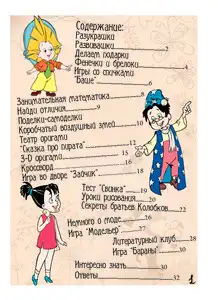 Содержание:
Разукрашки
Развивашки..............2
Делаем подарки
Фенечки и брелоки....4
Игры со спичками
"Баше"..................6
Занимательная математика.............8
Найди отличия.............9
Поделки-самоделки
Коробчатый воздушный змей.......10
Театр оригами
"Сказка про пирата".......12
3-D оригами...................15
Кроссворд....................16
Игра во дворе "Зайчик"......18
Тест "Свинка"......19
Уроки рисования......20
Секреты братьев Колобков......22
Немного о моде
Игра "Модельер"..............26
Литературный клуб......28
Игра "Бараны"......30
Интересно знать..............30
Ответы..........................32
1